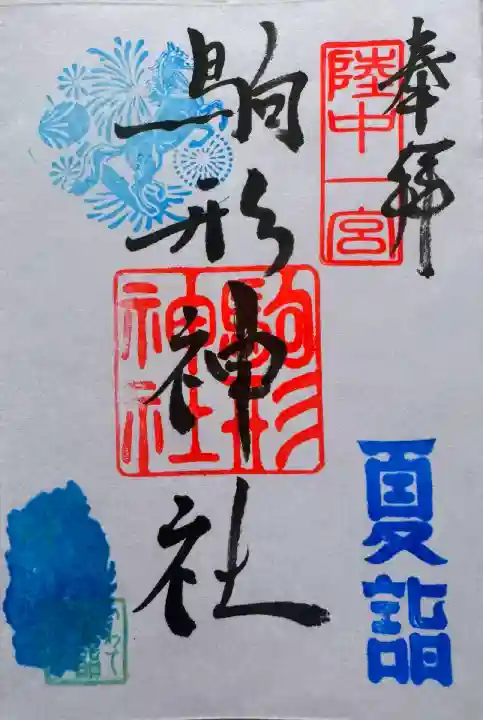 奉拝
陸中一宮
駒形神社
駒形
神社
夏詣